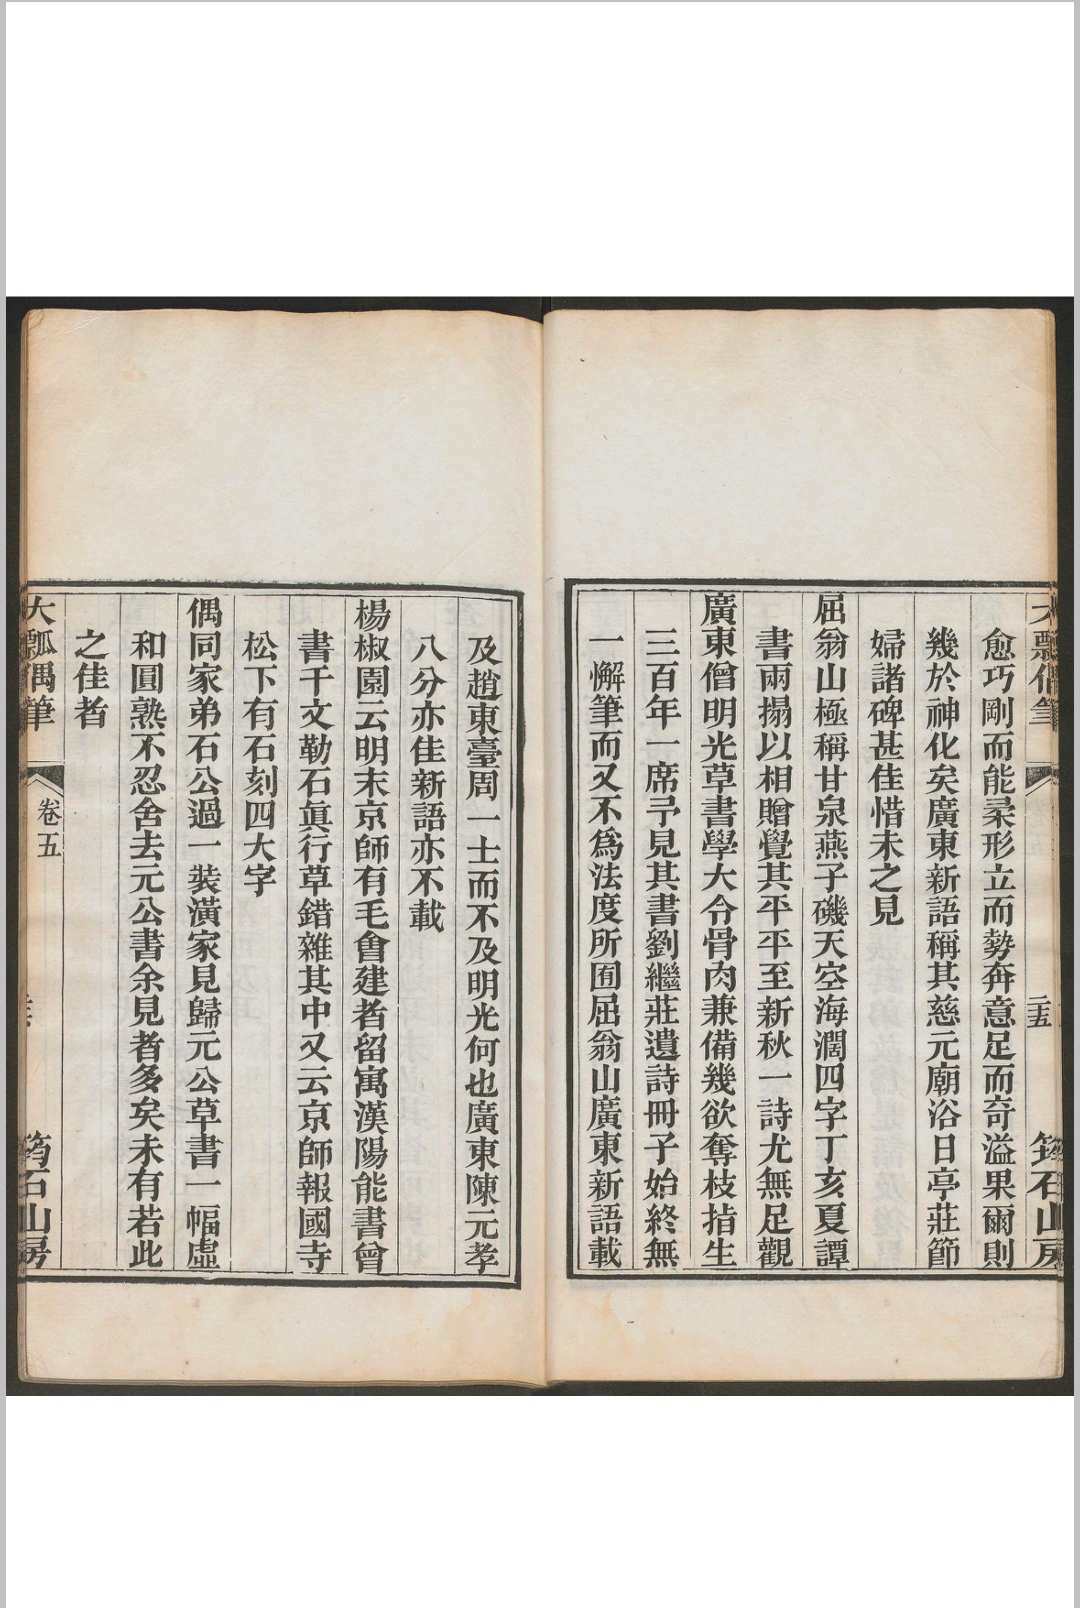 大瓢偶筆
筠石山房
愈巧剛而能柔形立而勢奔意足而奇溢果爾則
幾於神化矣廣東新語稱其慈元廟浴日亭莊節
婦諸碑甚佳惜未之見
屈翁山極稱甘泉燕子磯天空海濶四字丁亥夏譚
書兩搨以相贈覺其平平至新秋一詩尤無足觀
廣東僧明光草書學大令骨肉兼備幾欲奪枝指生
三百年一席予見其書劉繼莊遺詩冊子始終無
一懈筆而又不為法度所囿屈翁山廣東新語載
及趙東臺周一士而不及明光何也廣東陳元孝
八分亦佳新語亦不載
楊椒園云明末京師有毛會建者留寓漢陽能書曾
書千文勒石眞行草錯雜其中又云京師報國寺
松下有石刻四大字
偶同家弟石公過一裝潢家見歸元公草書一幅虛
和圓熟不忍舍去元公書余見者多矣未有若此
之佳者
大瓢偶筆
卷五
筠石山房